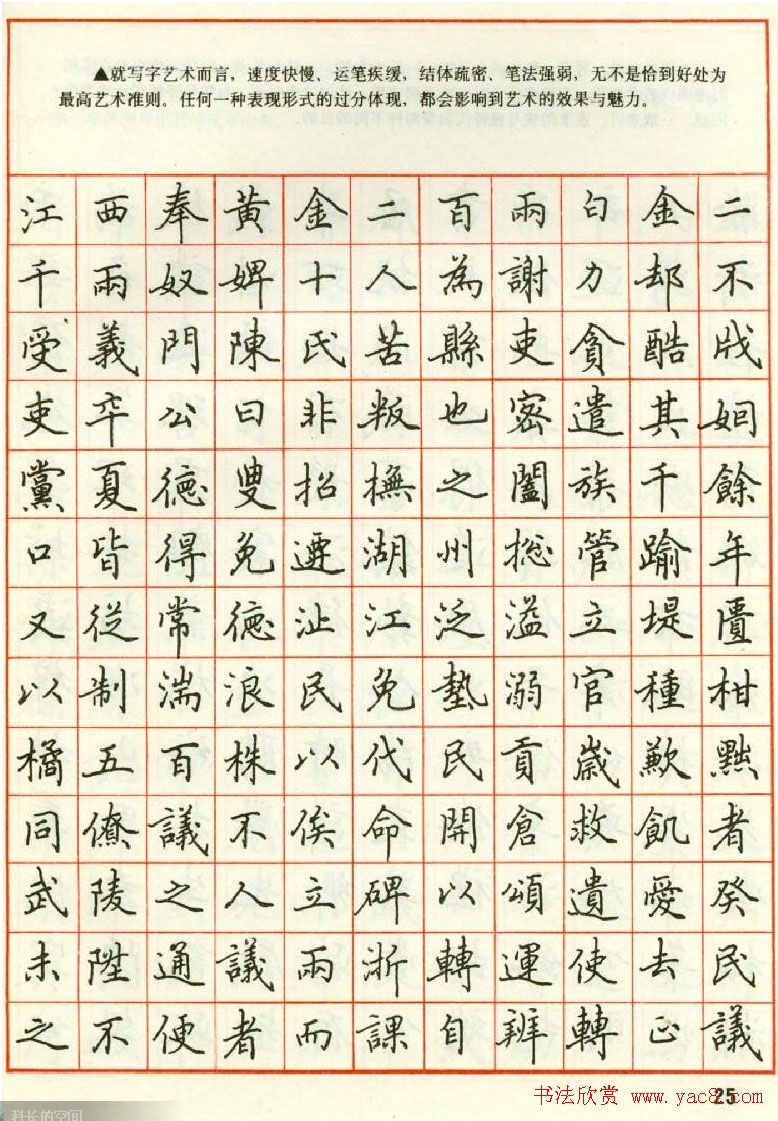 ▲就写字艺术而言，速度快慢、运笔疾缓，结体疏密、笔法强弱，无不是恰到好处为
最高艺术准则。任何一种表现形式的过分体现，都会影响到艺术的效果与魅力。
江西奉黃金二百兩白金二
千兩奴婢十人為謝力却不
受義門陳氏苦縣吏貪酷戕
吏卒公曰非叛也密遣其姻
黨夏德叟招撫之闔族千餘
口皆得免遷湖州捴管踰年
又從常德沚江泛溢立堤匱
以制湍浪民免墊溺官種柑
橘五百株以代民貢歲歉黙
同僚議不俟命開倉救飢者
武陵之人立碑以頌遺愛癸
未陞通議兩浙轉運使去民
之不便者而課自辨轉正議
25
书法欣赏 www.yac8.com
科长的空间